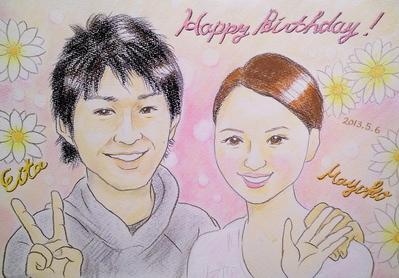 Happy Birthday!
2013.5.6
Eita
Mayoko